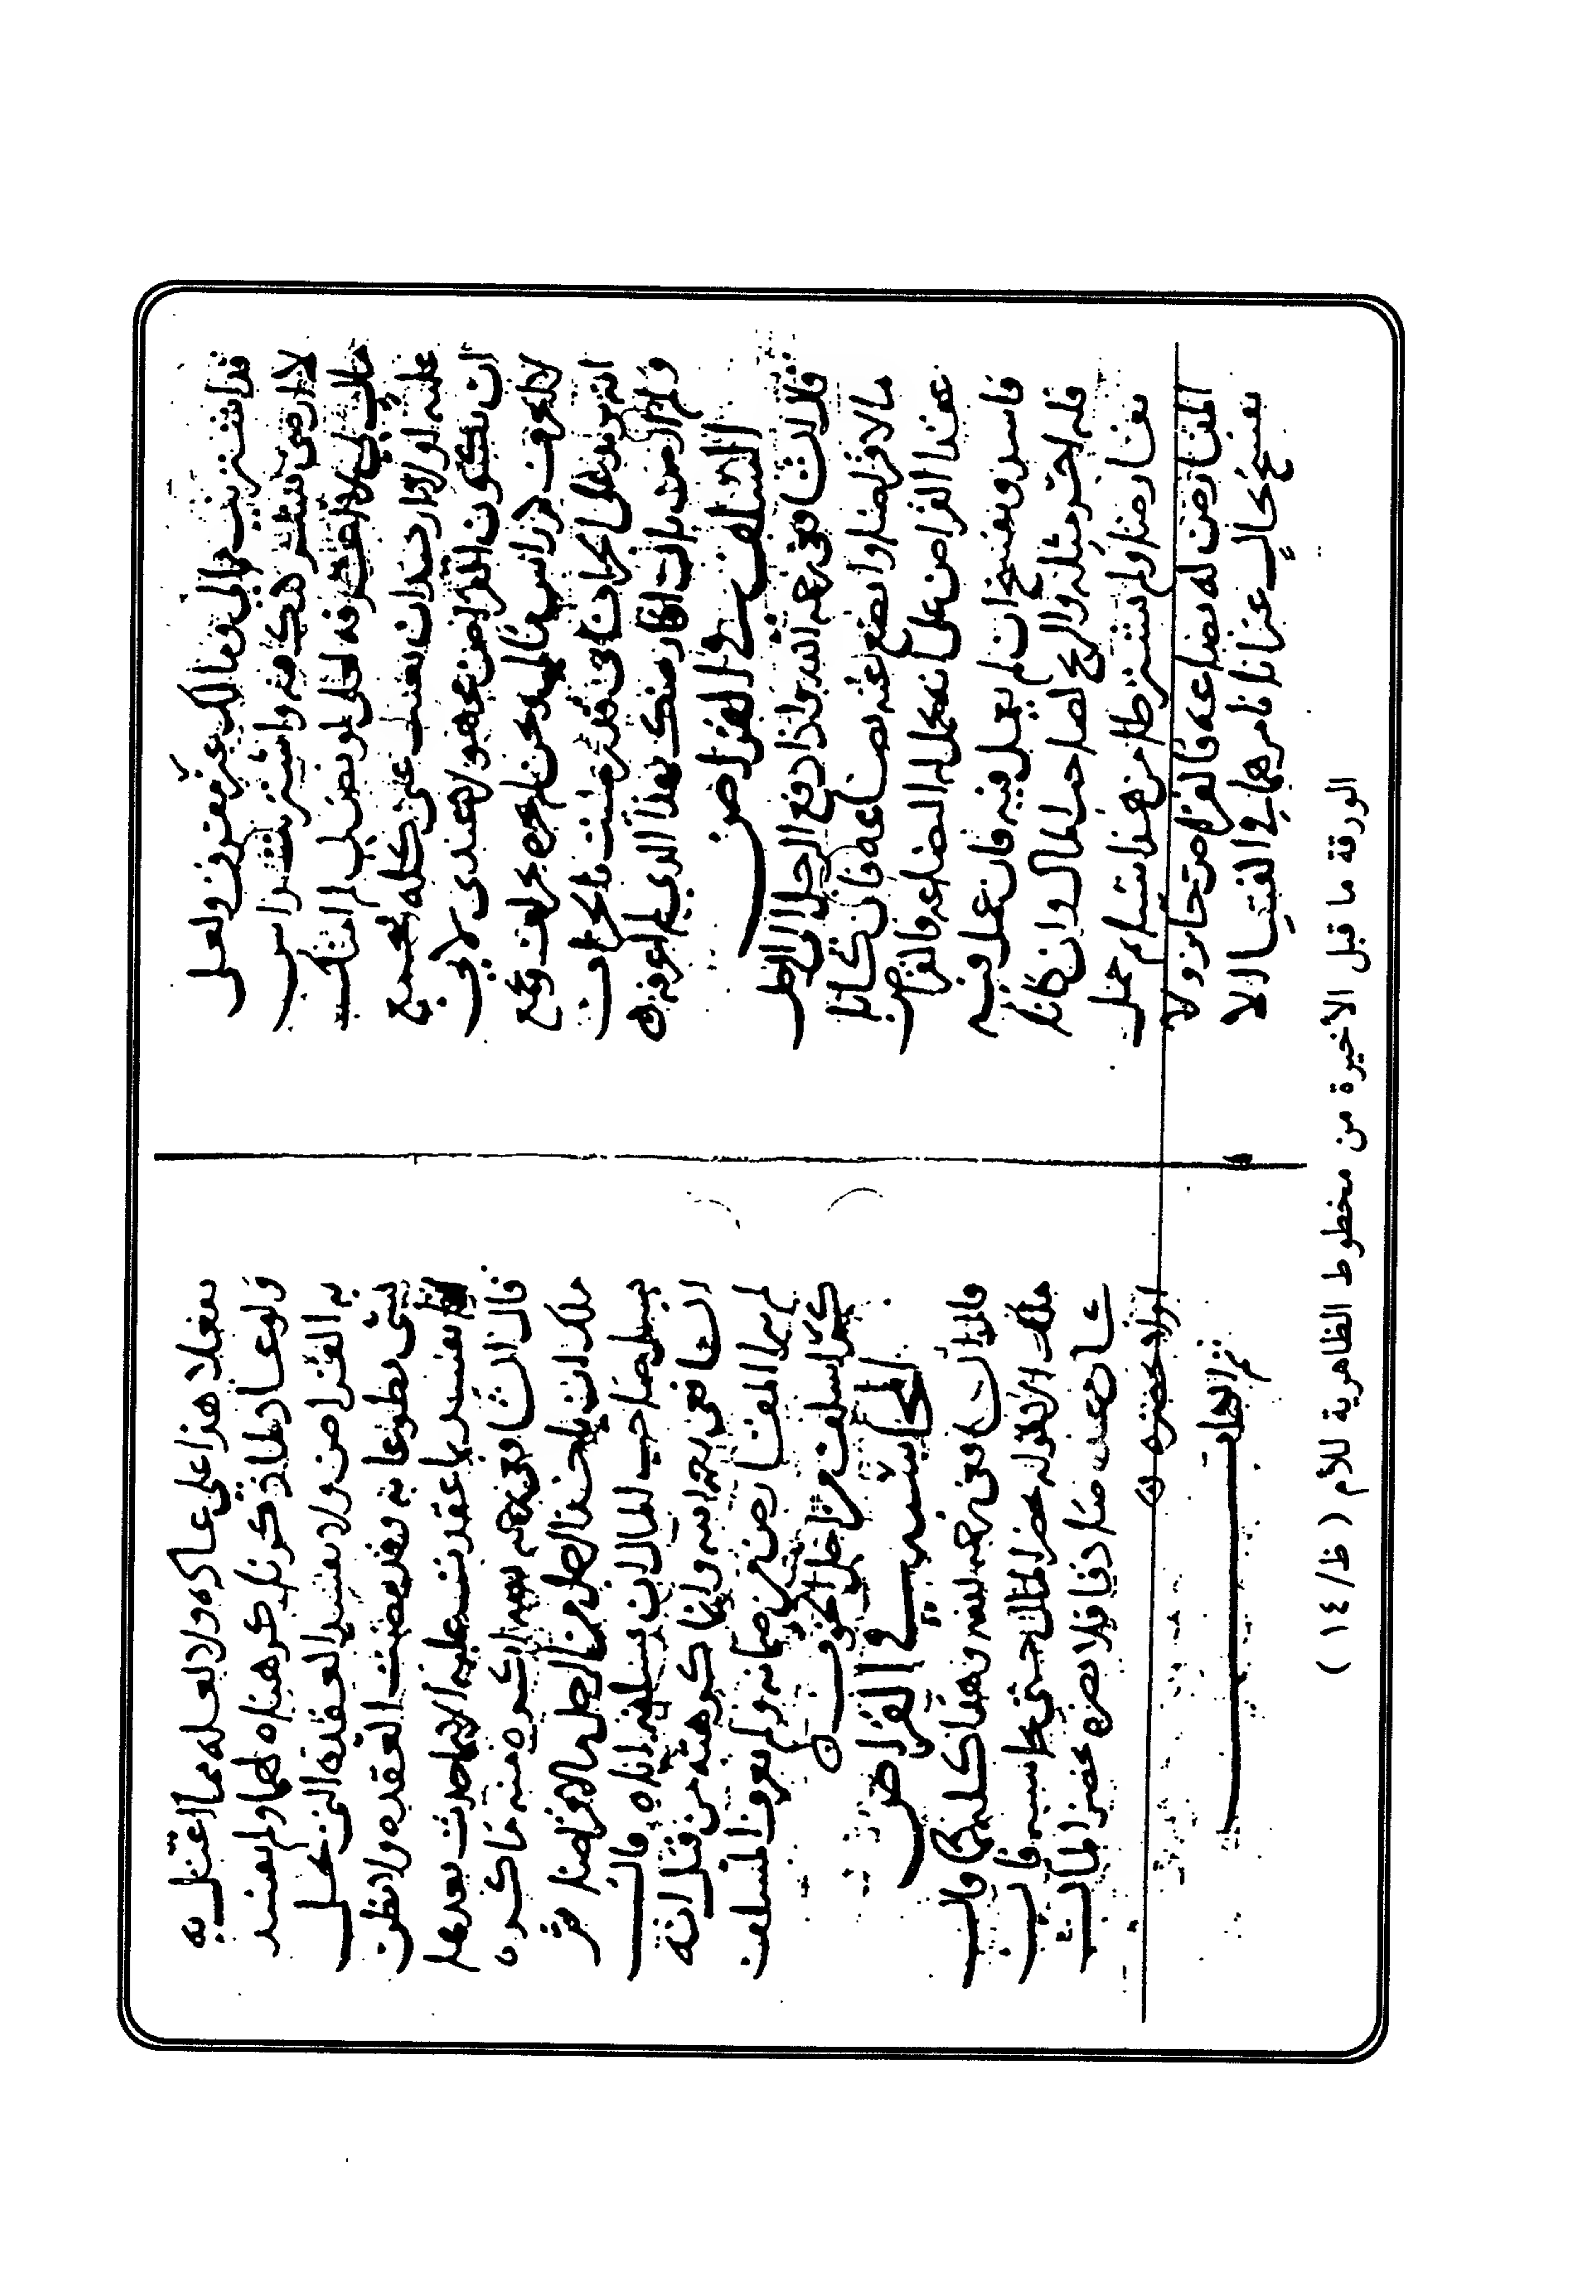 قد اشتريت مالي ومالك غير مفرق ولعلي
لا ارضى بشركتك فيه واشتريت براس
مالي لي لا اعرفه لعلي لو نض لي لم
عليه لو لا اردت ان يعينك على كله يجمع
ان يكون القراض مجهولا عندي لاني
لا اعرف كم راس مالي ونحن لا نجيز بجزاف ويجمع
انه يزيد على الجزاف اني قد رضيت بالجزاف
ولم ارض بان اقارضك بهذا الذي لم اعرفه ه
السلف في القراض
قال الشافعي رحمه الله واذا دفع الرجل الى الرجل
مالا قراضا وابضع معه بضاعة فان كانا
عقدا القراض على انه يحمل له البضاعة فالقراض
فاسد ويفسخ ان لم يعمل فيه فان عمل فيه
فله اجر مثله والربح لصاحب المال وان كانا
تقارضا ولم يشترطا من هذا شيا ثم حمل
المقارض له بضاعة فالقراض جائز ولا
يفسخ بحال غير انا نامرهما في الفتيا الا
يفعلا هذا على عادة ولا لعلة مما اعتل به
ولو عادا لما ذكرنا كرهناه لهما ولم نفسد
به القراض ولا نفسد العقدة التي تحل
بشي تطوعا به وقد مضت العقدة ولا نظن
انما نفسد بما عقدت عليه لا بما حدث بعدها
قال الشافعي رحمه الله اكره منه ما كره
ملك ان ياخذ الرجل من الرجل مالا قراضا ثم
يسل صاحب المال ان يسلفه اياه قال
الشافعي رحمه الله وانما كرهته من قبل انه
لم يبرا المقارض من ضمانه ولم يعرف المسلف
كم اسلف من اجل الخوف ه
المحاسبة في القراض
قال الشافعي رحمه الله وهذا كله كما قال
ملك الا قوله يحضر المال حتى يحاسبه فان
كان عنده صادقا فلا يضره يحضر المال
اولا يحضره ه
تم الكتاب
الورقة ما قبل الأخيرة من مخطوط الظاهرية للأم ( ظ/ ١٤ )